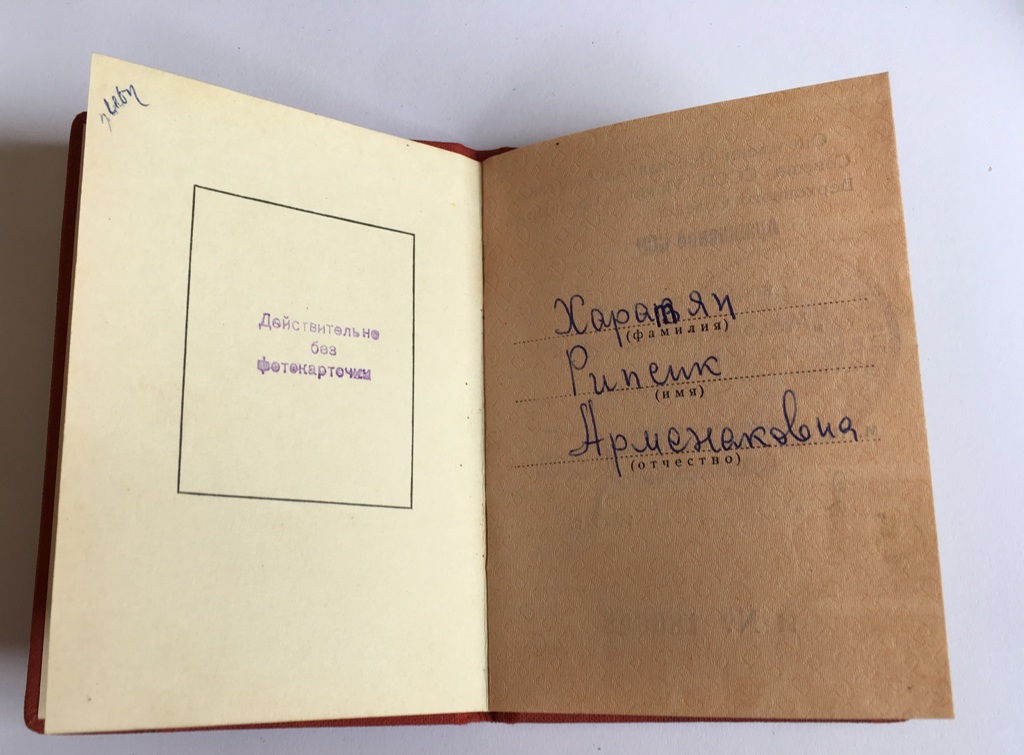 Действительно
без
фотокарточки
Харатян
(фамилия)
Рипсик
(имя)
Арменаковна
(отчество)